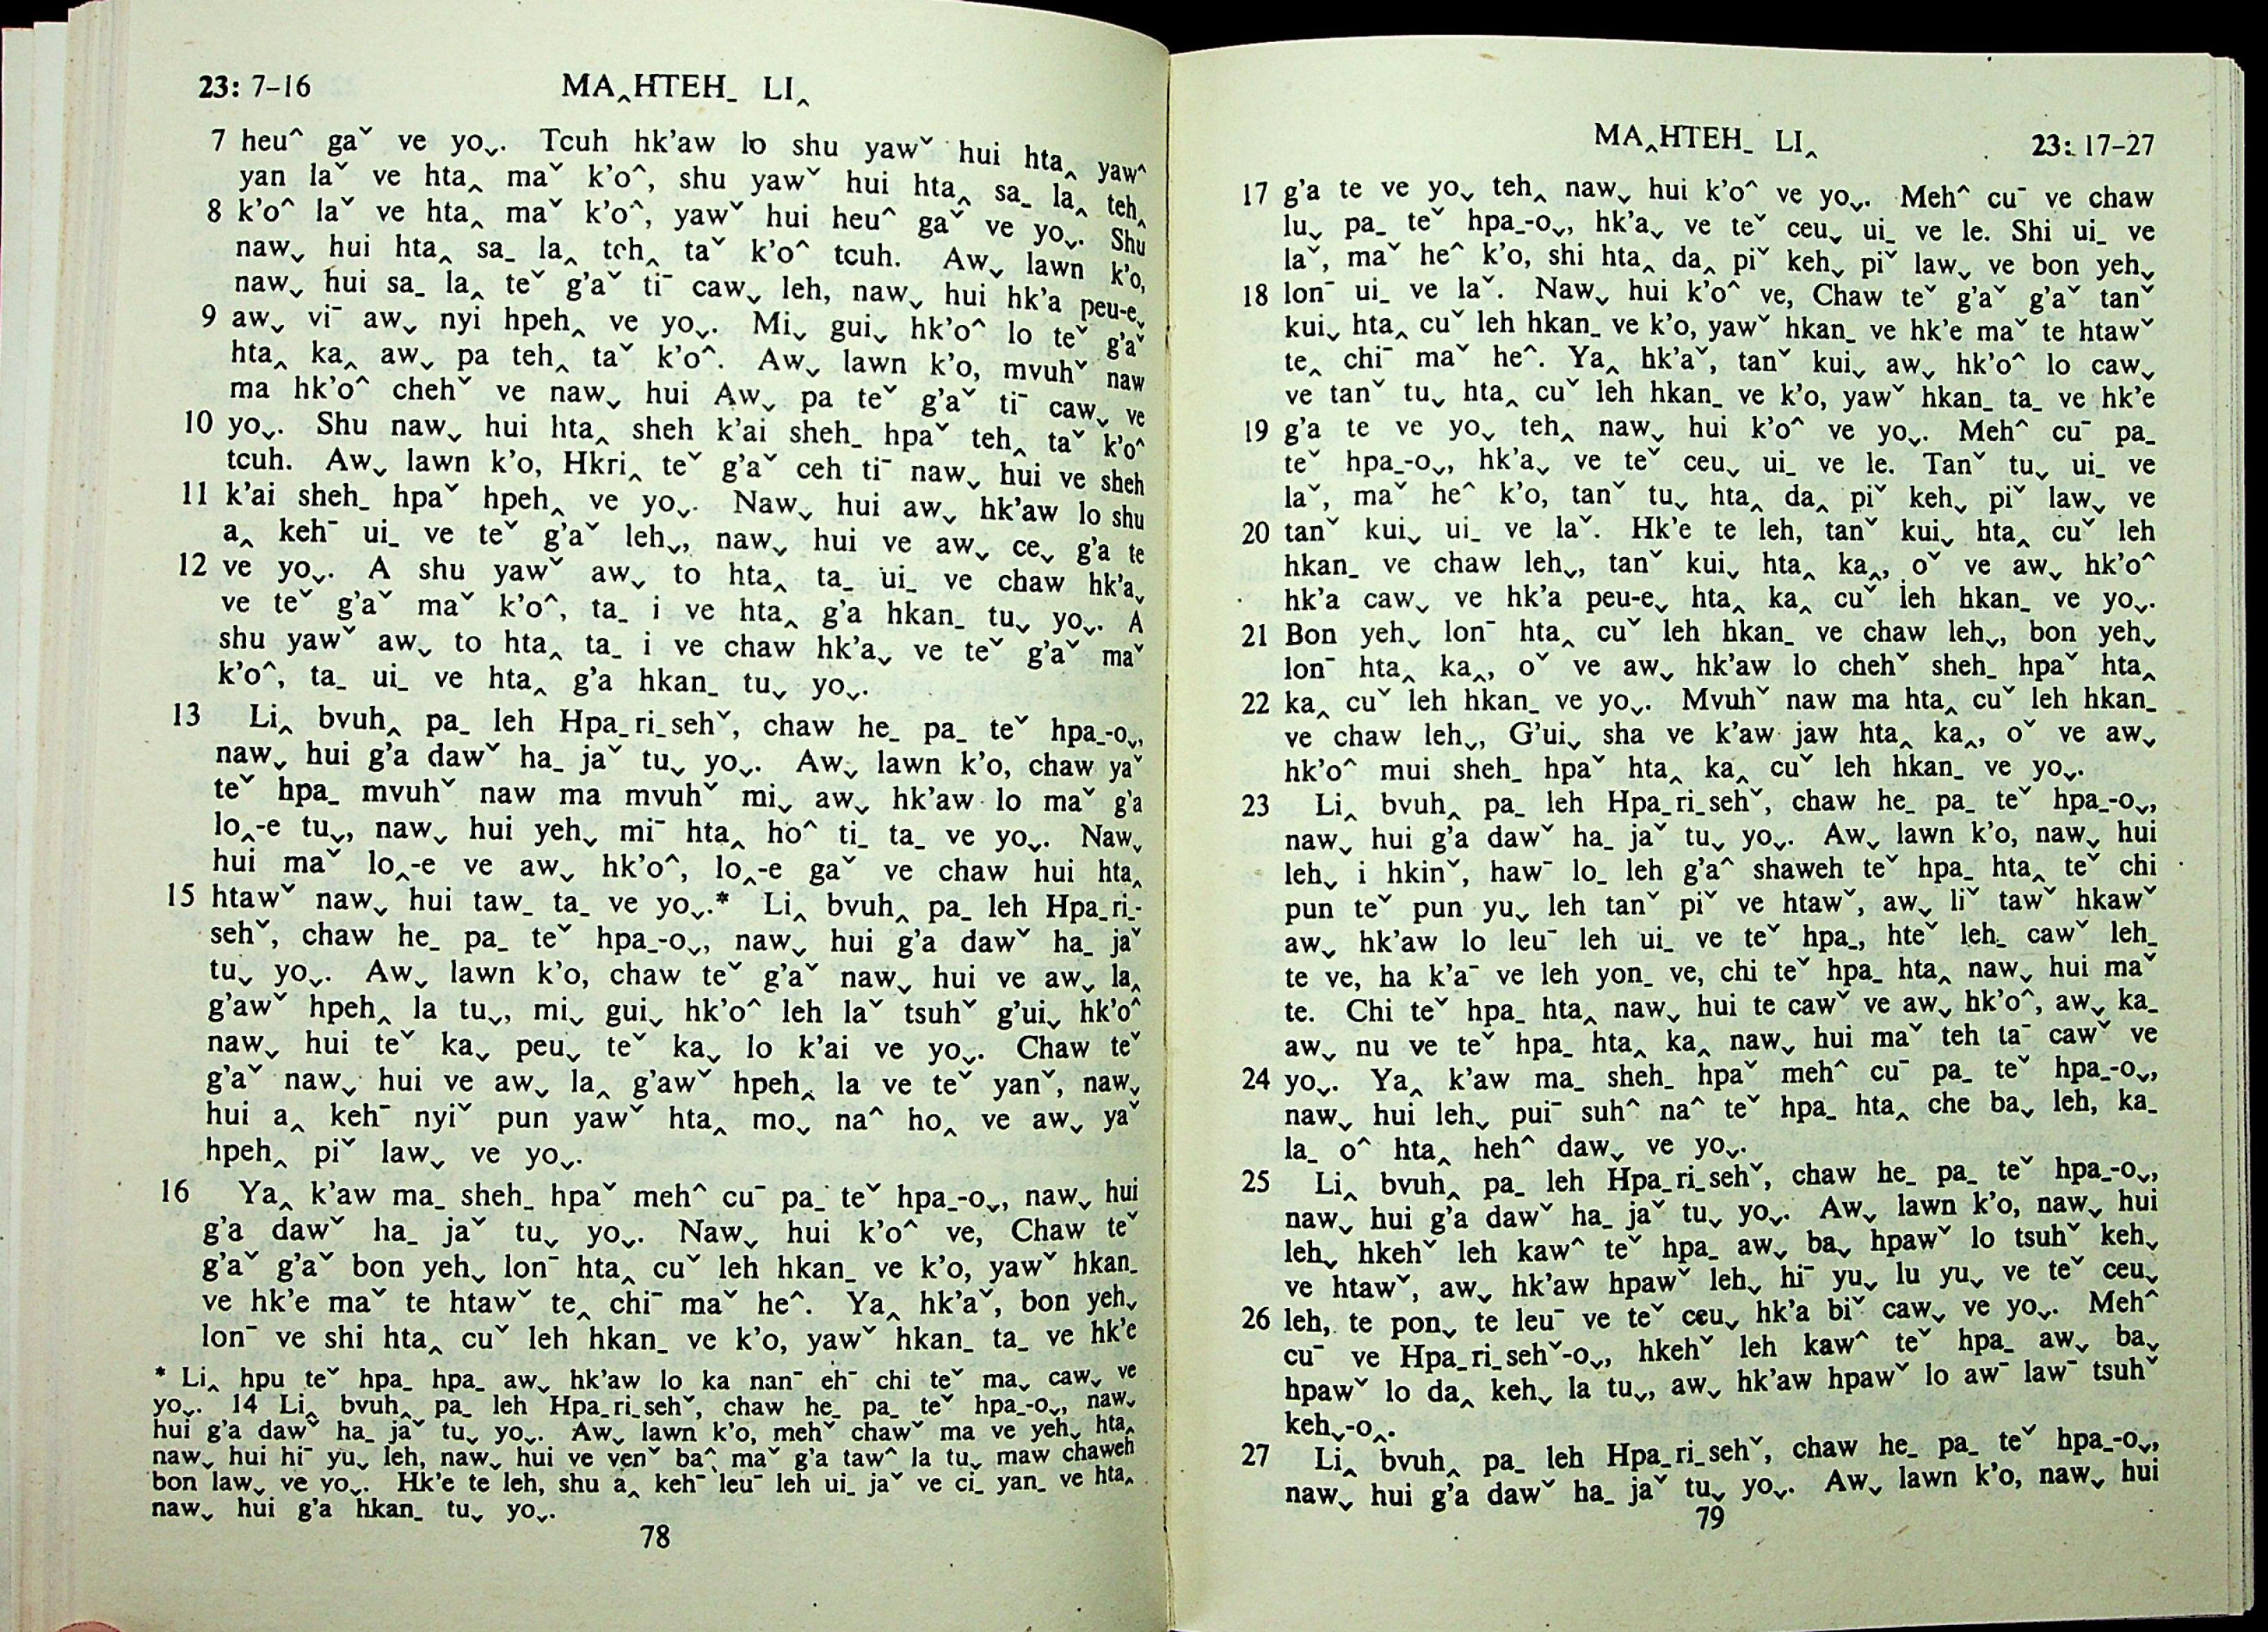 23: 7–16 MA‸HTEH_ LI‸
7 heu^ gaˇ ve yo⌄. Tcuh hk'aw lo shu yawˇ hui hta‸ yaw^
yan laˇ ve hta‸ maˇ k'o^, shu yawˇ hui hta‸ sa_ la‸ teh‸
8 k'o^ laˇ ve hta‸ maˇ k'o^, yawˇ hui heu^ gaˇ ve yo⌄. Shu
naw⌄ hui hta‸ sa_ la‸ teh‸ taˇ k'o^ tcuh. Aw⌄ lawn k'o,
naw⌄ hui sa_ la‸ teˇ g'aˇ ti¯ caw⌄ leh, naw⌄ hui hk'a peu-e⌄
9 aw⌄ vi¯ aw⌄ nyi hpeh‸ ve yo⌄. Mi⌄ gui⌄ hk'o^ lo teˇ g'aˇ
hta‸ ka‸ aw⌄ pa teh‸ taˇ k'o^. Aw⌄ lawn k'o, mvuhˇ naw
ma hk'o^ chehˇ ve naw⌄ hui Aw⌄ pa teˇ g'aˇ ti¯ caw⌄ ve
10 yo⌄. Shu naw⌄ hui hta‸ sheh k'ai sheh_ hpaˇ teh‸ taˇ k'o^
tcuh. Aw⌄ lawn k'o, Hkri‸ teˇ g'aˇ ceh ti¯ naw⌄ hui ve sheh
11 k'ai sheh_ hpaˇ hpeh‸ ve yo⌄. Naw⌄ hui aw⌄ hk'aw lo shu
a‸ keh¯ ui_ ve teˇ g'aˇ leh⌄, naw⌄ hui ve aw⌄ ce⌄ g'a te
12 ve yo⌄. A shu yawˇ aw⌄ to hta‸ ta_ ui_ ve chaw hk'a⌄
ve teˇ g'aˇ maˇ k'o^, ta_ i ve hta‸ g'a hkan_ tu⌄ yo⌄. A
shu yawˇ aw⌄ to hta‸ ta_ i ve chaw hk'a⌄ ve teˇ g'aˇ maˇ
k'o^, ta_ ui_ ve hta‸ g'a hkan_ tu⌄ yo⌄.
13 Li‸ bvuh‸ pa_ leh Hpa_ri_sehˇ, chaw he_ pa_ teˇ hpa_-o⌄,
naw⌄ hui g'a dawˇ ha_ jaˇ tu⌄ yo⌄. Aw⌄ lawn k'o, chaw yaˇ
teˇ hpa_ mvuhˇ naw ma mvuhˇ mi⌄ aw⌄ hk'aw lo maˇ g'a
lo‸-e tu⌄, naw⌄ hui yeh⌄ mi¯ hta‸ ho^ ti_ ta_ ve yo⌄. Naw⌄
hui maˇ lo‸-e ve aw⌄ hk'o^, lo‸-e gaˇ ve chaw hui hta‸
15 htawˇ naw⌄ hui taw_ ta_ ve yo⌄.* Li‸ bvuh‸ pa_ leh Hpa_ri_-
sehˇ, chaw he_ pa_ teˇ hpa_-o⌄, naw⌄ hui g'a dawˇ ha_ jaˇ
tu⌄ yo⌄. Aw⌄ lawn k'o, chaw teˇ g'aˇ naw⌄ hui ve aw⌄ la‸
g'awˇ hpeh‸ la tu⌄, mi⌄ gui⌄ hk'o^ leh laˇ tsuhˇ g'ui⌄ hk'o^
naw⌄ hui teˇ ka⌄ peu⌄ teˇ ka⌄ lo k'ai ve yo⌄. Chaw teˇ
g'aˇ naw⌄ hui ve aw⌄ la‸ g'awˇ hpeh‸ la ve teˇ yanˇ, naw⌄
hui a‸ keh¯ nyiˇ pun yawˇ hta‸ mo⌄ na^ ho‸ ve aw⌄ yaˇ
hpeh‸ piˇ law⌄ ve yo⌄.
16 Ya‸ k'aw ma_ sheh_ hpaˇ meh^ cu¯ pa_ teˇ hpa_-o⌄, naw⌄ hui
g'a dawˇ ha_ jaˇ tu⌄ yo⌄. Naw⌄ hui k'o^ ve, Chaw teˇ
g'aˇ g'aˇ bon yeh⌄ lon¯ hta‸ cuˇ leh hkan_ ve k'o, yawˇ hkan_
ve hk'e maˇ te htawˇ te‸ chi¯ maˇ he^. Ya‸ hk'aˇ, bon yeh⌄
lon¯ ve shi hta‸ cuˇ leh hkan_ ve k'o, yawˇ hkan_ ta_ ve hk'e
* Li‸ hpu teˇ hpa_ hpa_ aw⌄ hk'aw lo ka nan¯ eh¯ chi teˇ ma⌄ caw⌄ ve
yo⌄. 14 Li‸ bvuh‸ pa_ leh Hpa_ri_sehˇ, chaw he_ pa_ teˇ hpa_-o⌄, naw⌄
hui g'a dawˇ ha_ jaˇ tu⌄ yo⌄. Aw⌄ lawn k'o, mehˇ chawˇ ma ve yeh⌄ hta‸
naw⌄ hui hi¯ yu⌄ leh, naw⌄ hui ve venˇ ba^ maˇ g'a taw^ la tu⌄ maw chaweh
bon law⌄ ve yo⌄. Hk'e te leh, shu a‸ keh¯ leu¯ leh ui_ jaˇ ve ci_ yan_ ve hta‸
naw⌄ hui g'a hkan_ tu⌄ yo⌄.
78
MA‸HTEH_ LI‸ 23: 17–27
17 g'a te ve yo⌄ teh‸ naw⌄ hui k'o^ ve yo⌄. Meh^ cu¯ ve chaw
lu⌄ pa_ teˇ hpa_-o⌄, hk'a⌄ ve teˇ ceu⌄ ui_ ve le. Shi ui_ ve
laˇ, maˇ he^ k'o, shi hta‸ da‸ piˇ keh⌄ piˇ law⌄ ve bon yeh⌄
18 lon¯ ui_ ve laˇ. Naw⌄ hui k'o^ ve, Chaw teˇ g'aˇ g'aˇ tanˇ
kui⌄ hta‸ cuˇ leh hkan_ ve k'o, yawˇ hkan_ ve hk'e maˇ te htawˇ
te‸ chi¯ maˇ he^. Ya‸ hk'aˇ, tanˇ kui⌄ aw⌄ hk'o^ lo caw⌄
ve tanˇ tu⌄ hta‸ cuˇ leh hkan_ ve k'o, yawˇ hkan_ ta_ ve hk'e
19 g'a te ve yo⌄ teh‸ naw⌄ hui k'o^ ve yo⌄. Meh^ cu¯ pa_
teˇ hpa_-o⌄, hk'a⌄ ve teˇ ceu⌄ ui_ ve le. Tanˇ tu⌄ ui_ ve
laˇ, maˇ he^ k'o, tanˇ tu⌄ hta‸ da‸ piˇ keh⌄ piˇ law⌄ ve
20 tanˇ kui⌄ ui_ ve laˇ. Hk'e te leh, tanˇ kui⌄ hta‸ cuˇ leh
hkan_ ve chaw leh⌄, tanˇ kui⌄ hta‸ ka‸, oˇ ve aw⌄ hk'o^
hk'a caw⌄ ve hk'a peu-e⌄ hta‸ ka‸ cuˇ leh hkan_ ve yo⌄.
21 Bon yeh⌄ lon¯ hta‸ cuˇ leh hkan_ ve chaw leh⌄, bon yeh⌄
lon¯ hta‸ ka‸, oˇ ve aw⌄ hk'aw lo chehˇ sheh_ hpaˇ hta‸
22 ka‸ cuˇ leh hkan_ ve yo⌄. Mvuhˇ naw ma hta‸ cuˇ leh hkan_
ve chaw leh⌄, G'ui⌄ sha ve k'aw jaw hta‸ ka‸, oˇ ve aw⌄
hk'o^ mui sheh_ hpaˇ hta‸ ka‸ cuˇ leh hkan_ ve yo⌄.
23 Li‸ bvuh‸ pa_ leh Hpa_ri_sehˇ, chaw he_ pa_ teˇ hpa_-o⌄,
naw⌄ hui g'a dawˇ ha_ jaˇ tu⌄ yo⌄. Aw⌄ lawn k'o, naw⌄ hui
leh⌄ i hkinˇ, haw¯ lo_ leh g'a^ shaweh teˇ hpa_ hta‸ teˇ chi
pun teˇ pun yu⌄ leh tanˇ piˇ ve htawˇ, aw⌄ liˇ tawˇ hkawˇ
aw⌄ hk'aw lo leu¯ leh ui_ ve teˇ hpa_, hteˇ leh_ cawˇ leh_
te ve, ha k'a¯ ve leh yon_ ve, chi teˇ hpa_ hta‸ naw⌄ hui maˇ
te. Chi teˇ hpa_ hta‸ naw⌄ hui te cawˇ ve aw⌄ hk'o^, aw⌄ ka_
aw⌄ nu ve teˇ hpa_ hta‸ ka‸ naw⌄ hui maˇ teh ta¯ cawˇ ve
24 yo⌄. Ya‸ k'aw ma_ sheh_ hpaˇ meh^ cu¯ pa_ teˇ hpa_-o⌄,
naw⌄ hui leh⌄ pui¯ suh^ na^ teˇ hpa_ hta‸ che ba⌄ leh, ka_
la_ o^ hta‸ heh^ daw⌄ ve yo⌄.
25 Li‸ bvuh‸ pa_ leh Hpa_ri_sehˇ, chaw he_ pa_ teˇ hpa_-o⌄,
naw⌄ hui g'a dawˇ ha_ jaˇ tu⌄ yo⌄. Aw⌄ lawn k'o, naw⌄ hui
leh⌄ hkehˇ leh kaw^ teˇ hpa_ aw⌄ ba⌄ hpawˇ lo tsuhˇ keh⌄
ve htawˇ, aw⌄ hk'aw hpawˇ leh⌄ hi¯ yu⌄ lu yu⌄ ve teˇ ceu⌄
26 leh, te pon⌄ te leu¯ ve teˇ ceu⌄ hk'a biˇ caw⌄ ve yo⌄. Meh^
cu¯ ve Hpa_ri_sehˇ-o⌄, hkehˇ leh kaw^ teˇ hpa_ aw⌄ ba⌄
hpawˇ lo da‸ keh⌄ la tu⌄, aw⌄ hk'aw hpawˇ lo aw¯ law¯ tsuhˇ
keh⌄-o‸.
27 Li‸ bvuh‸ pa_ leh Hpa_ri_sehˇ, chaw he_ pa_ teˇ hpa_-o⌄,
naw⌄ hui g'a dawˇ ha_ jaˇ tu⌄ yo⌄. Aw⌄ lawn k'o, naw⌄ hui
79